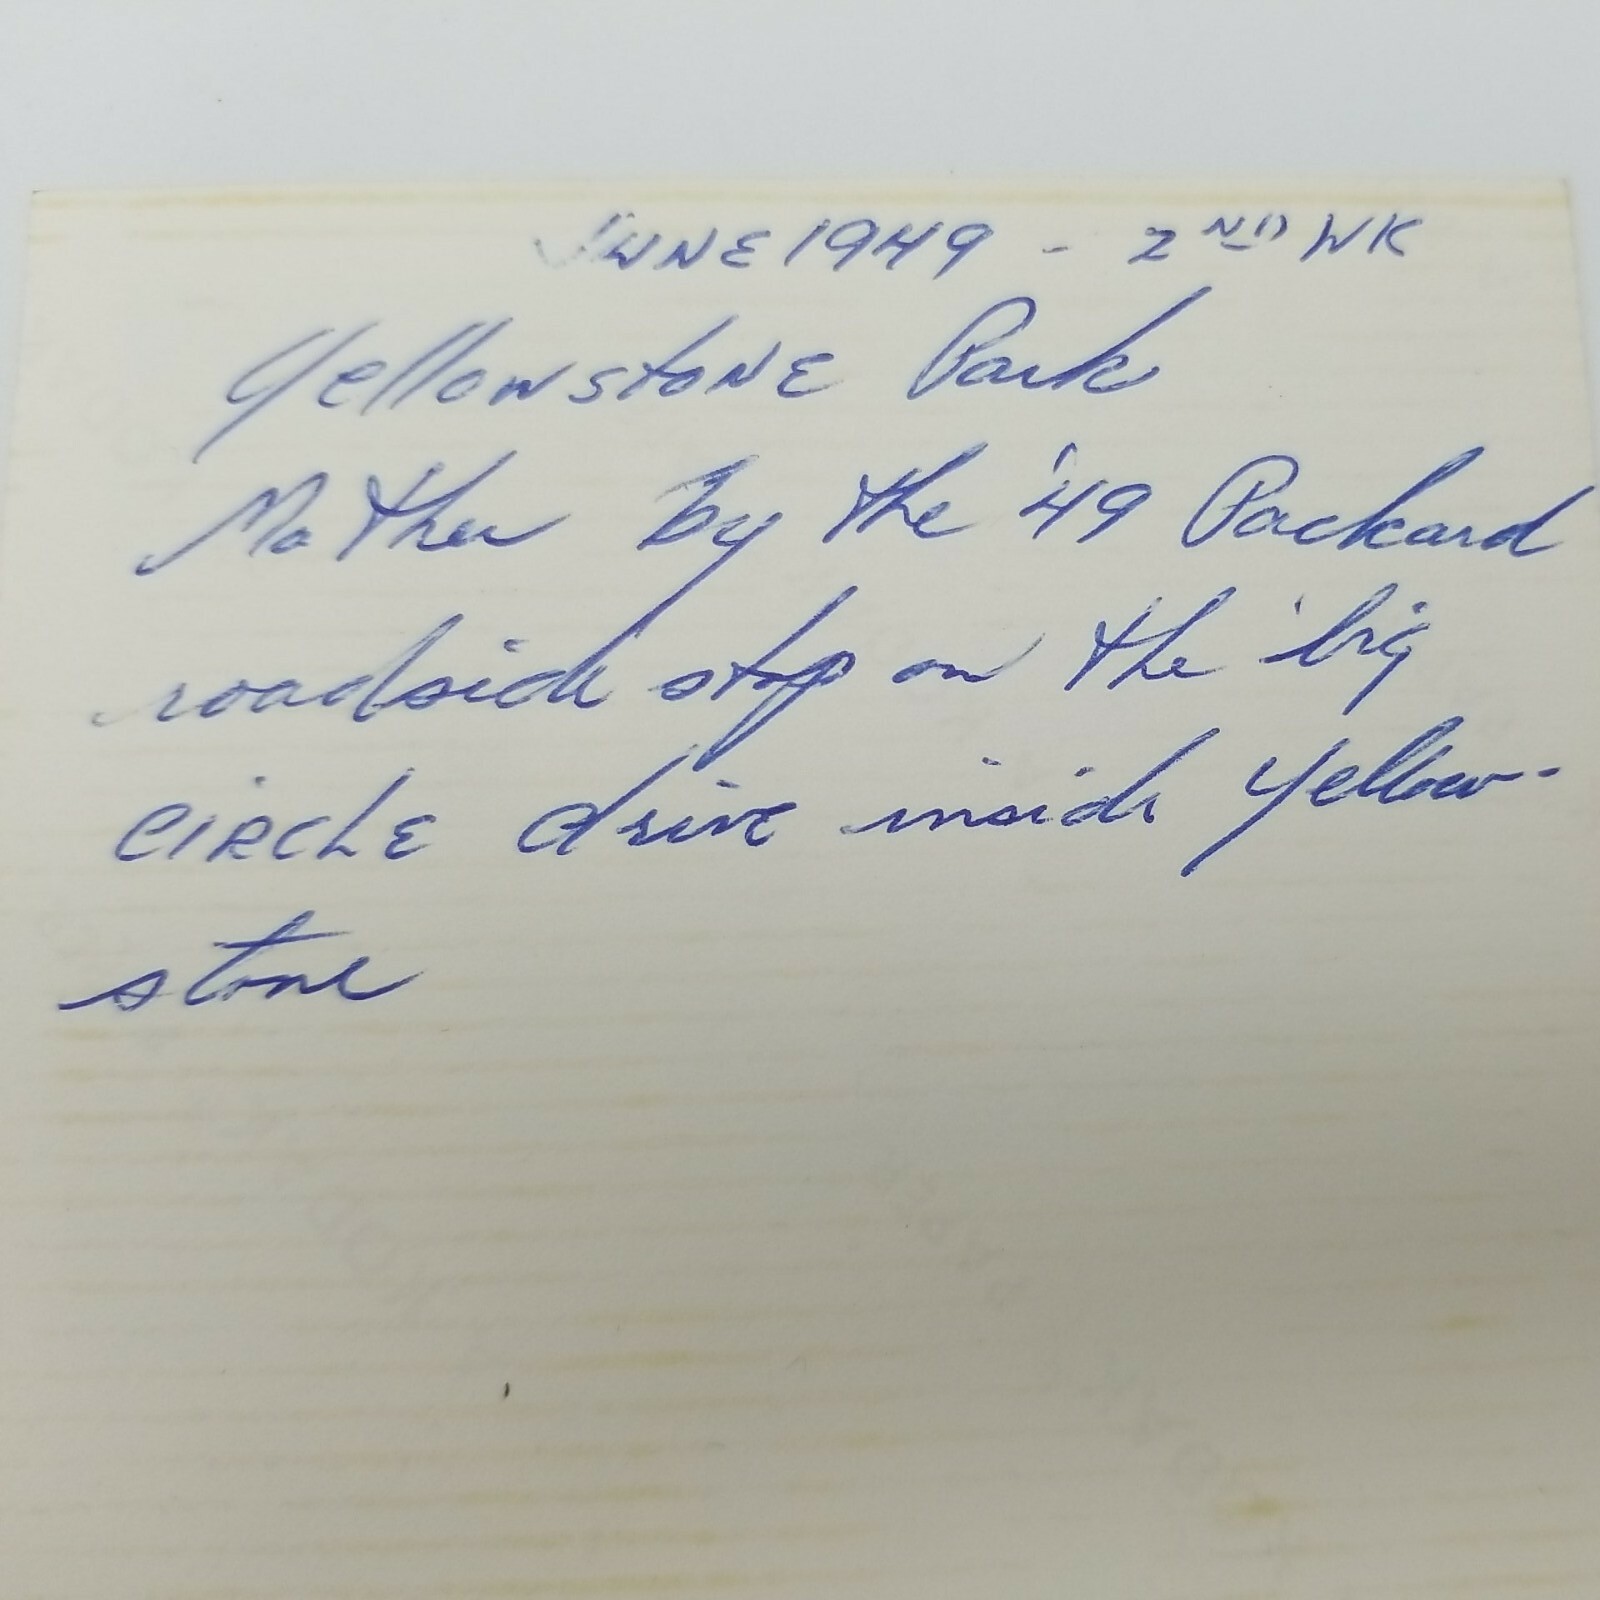 JUNE 1949 - 2ND WK
Yellowstone Park
Mother by the '49 Packard
roadside stop on the big
CIRCLE drive inside Yellow-
stone